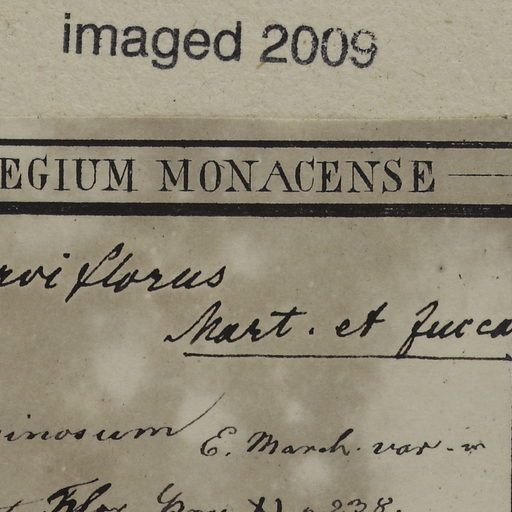 imaged 2009
EGIUM MONACENSE
rviflorus
Mart. et Zucca
inosum E. March. var.
Flor. Bras. XI p 238.